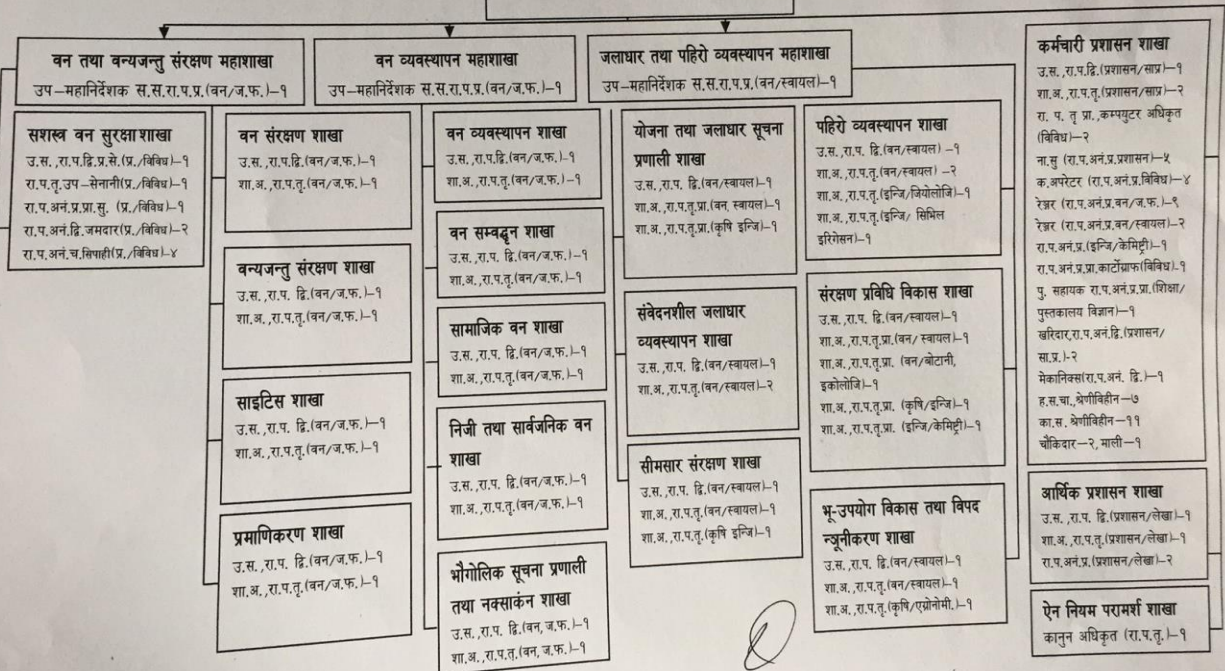 वन तथा वन्यजन्तु संरक्षण महाशाखा
उप-महानिर्देशक स.स.रा.प.प्र.(वन/ज.फ.)-१
सशस्त्र वन सुरक्षा शाखा
उ.स.,रा.प.द्वि.प्र.से.(प्र./विविध)-१
रा.प.तृ.उप-सेनानी(प्र./विविध)-१
रा.प.अनं.प्र.प्रा.सु. (प्र./विविध)-१
रा.प.अनं.द्वि.जमदार(प्र./विविध)-२
रा.प.अनं.च.सिपाही(प्र./विविध)-४
वन संरक्षण शाखा
उ.स.,रा.प.द्वि.(वन/ज.फ.)-१
शा.अ.,रा.प.तृ.(वन/ज.फ.)-१
वन्यजन्तु संरक्षण शाखा
उ.स.,रा.प. द्वि.(वन/ज.फ.)-१
शा.अ.,रा.प.तृ.(वन/ज.फ.)-१
साइटिस शाखा
उ.स.,रा.प. द्वि.(वन/ज.फ.)-१
शा.अ.,रा.प.तृ.(वन/ज.फ.)-१
प्रमाणिकरण शाखा
उ.स.,रा.प. द्वि.(वन/ज.फ.)-१
शा.अ.,रा.प.तृ.(वन/ज.फ.)-१
वन व्यवस्थापन महाशाखा
उप-महानिर्देशक स.स.रा.प.प्र.(वन/ज.फ.)-१
वन व्यवस्थापन शाखा
उ.स.,रा.प.द्वि.(वन/ज.फ.)-१
शा.अ.,रा.प.तृ.(वन/ज.फ.)-१
वन सम्वर्द्धन शाखा
उ.स.,रा.प. द्वि.(वन/ज.फ.)-१
शा.अ.,रा.प.तृ.(वन/ज.फ.)-१
सामाजिक वन शाखा
उ.स.,रा.प. द्वि.(वन/ज.फ.)-१
शा.अ.,रा.प.तृ.(वन/ज.फ.)-१
निजी तथा सार्वजनिक वन
शाखा
उ.स.,रा.प. द्वि.(वन/ज.फ.)-१
शा.अ.,रा.प.तृ.(वन/ज.फ.)-१
भौगोलिक सूचना प्रणाली
तथा नक्साकंन शाखा
उ.स.,रा.प. द्वि.(वन,ज.फ.)-१
शा.अ.,रा.प.तृ.(वन,ज.फ.)-१
जलाधार तथा पहिरो व्यवस्थापन महाशाखा
उप-महानिर्देशक स.स.रा.प.प्र.(वन/स्वायल)-१
योजना तथा जलाधार सूचना
प्रणाली शाखा
उ.स.,रा.प. द्वि.(वन/स्वायल)-१
शा.अ.,रा.प.तृ.प्रा.(वन,स्वायल)-१
शा.अ.,रा.प.तृ.प्रा.(कृषि इन्जि)-१
संवेदनशील जलाधार
व्यवस्थापन शाखा
उ.स.,रा.प. द्वि.(वन/स्वायल)-१
शा.अ.,रा.प.तृ.(वन/स्वायल)-२
सीमसार संरक्षण शाखा
उ.स.,रा.प. द्वि.(वन/स्वायल)-१
शा.अ.,रा.प.तृ.(वन/स्वायल)-१
शा.अ.,रा.प.तृ.(कृषि इन्जि)-१
पहिरो व्यवस्थापन शाखा
उ.स.,रा.प. द्वि.(वन/स्वायल) -१
शा.अ.,रा.प.तृ.(वन/स्वायल) -२
शा.अ.,रा.प.तृ.(इन्जि/जियोलोजि)-१
शा.अ.,रा.प.तृ.(इन्जि/ सिभिल
इरिगेसन)-१
संरक्षण प्रविधि विकास शाखा
उ.स.,रा.प. द्वि.(वन/स्वायल)-१
शा.अ.,रा.प.तृ.प्रा.(वन/ स्वायल)-१
शा.अ.,रा.प.तृ.प्रा. (वन/बोटानी,
इकोलोजि)-१
शा.अ.,रा.प.तृ.प्रा. (कृषि/इन्जि)-१
शा.अ.,रा.प.तृ.प्रा. (इन्जि/केमिष्ट्री)-१
भू-उपयोग विकास तथा विपद
न्यूनीकरण शाखा
उ.स.,रा.प. द्वि.(वन/स्वायल)-१
शा.अ.,रा.प.तृ.(वन/स्वायल)-१
शा.अ.,रा.प.तृ.(कृषि/एग्रोनोमी.)-१
कर्मचारी प्रशासन शाखा
उ.स.,रा.प.द्वि.(प्रशासन/साप्र)-१
शा.अ.,रा.प.तृ.(प्रशासन/साप्र)-२
रा. प. तृ प्रा.,कम्पयुटर अधिकृत
(विविध)-२
ना.सु (रा.प.अनं.प्र.प्रशासन)-५
क.अपरेटर (रा.प.अनं.प्र.विविध)-४
रेञ्जर (रा.प.अनं.प्र.वन/ज.फ.)-९
रेञ्जर (रा.प.अनं.प्र.वन/स्वायल)-२
रा.प.अनं.प्र.(इन्जि/केमिष्ट्री)-१
रा.प.अनं.प्र.प्रा.कार्टोग्राफ(विविध)-१
पु. सहायक रा.प.अनं.प्र.प्रा.(शिक्षा/
पुस्तकालय विज्ञान)-१
खरिदार,रा.प.अनं.द्वि.(प्रशासन/
सा.प्र.)-२
मेकानिक्स(रा.प.अनं. द्वि.)-१
ह.स.चा.,श्रेणीविहीन-७
का.स. श्रेणीविहीन-११
चौकिदार-२, माली-१
आर्थिक प्रशासन शाखा
उ.स.,रा.प. द्वि.(प्रशासन/लेखा)-१
शा.अ.,रा.प.तृ.(प्रशासन/लेखा)-१
रा.प.अनं.प्र.(प्रशासन/लेखा)-२
ऐन नियम परामर्श शाखा
कानुन अधिकृत (रा.प.तृ.)-१